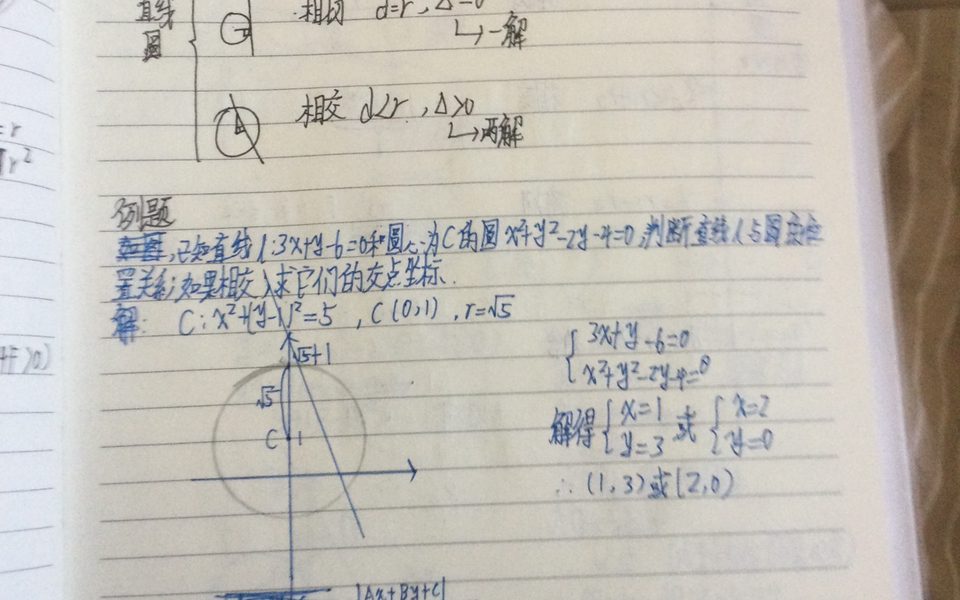 直线
圆
相切 d=r，Δ=0
↳一解
相交 d<r，Δ>0
↳两解
=r
r²
例题
已知直线l:3x+y-6=0和圆心为C的圆x²+y²-2y-4=0,判断直线l与圆的位
置关系;如果相交,求它们的交点坐标.
解: C:x²+(y-1)²=5，C(0,1)，r=√5
√5+1
√5
C 1
3x+y-6=0
x²+y²-2y-4=0
解得{x=1 y=3 或 {x=2 y=0
∴(1,3)或(2,0)
|Ax+By+C|